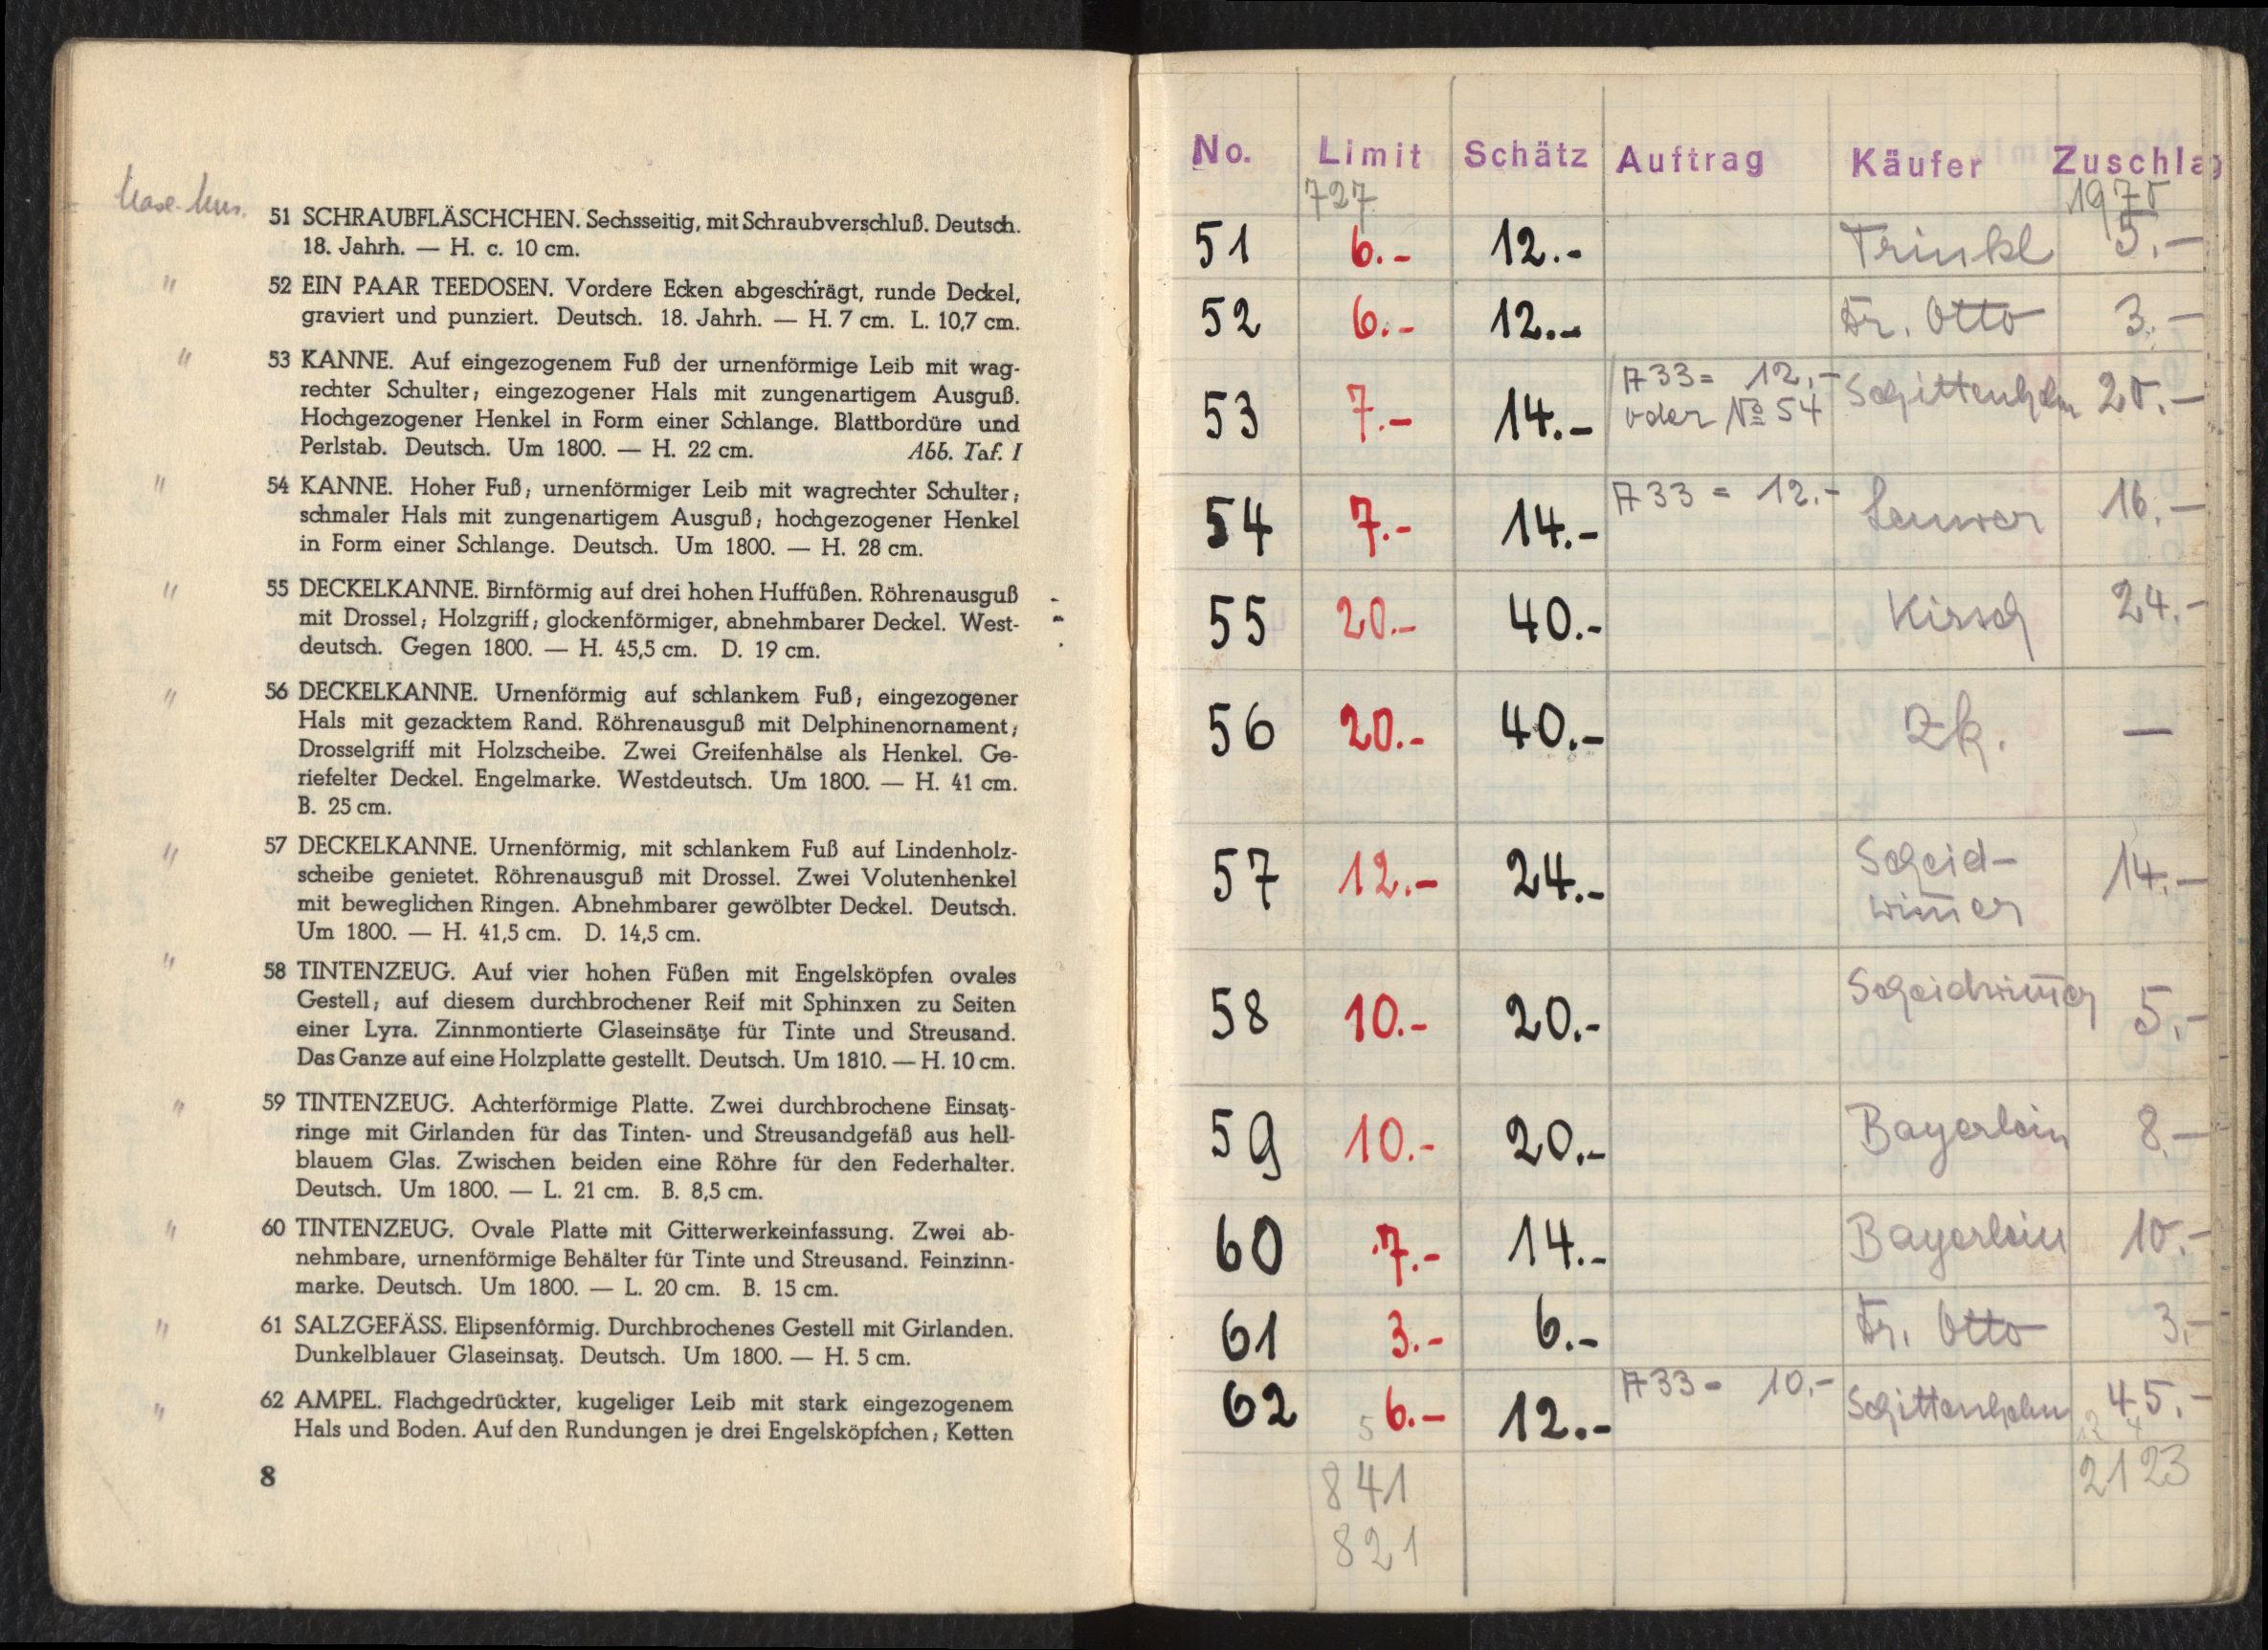 51 SCHRAUBFLÄSCHCHEN. Sechsseitig, mit Schraubverschluß. Deutsch.
18. Jahrh. — H. c. 10 cm.
" 52 EIN PAAR TEEDOSEN. Vordere Ecken abgeschrägt, runde Deckel,
graviert und punziert. Deutsch. 18. Jahrh. — H. 7 cm. L. 10,7 cm.
" 53 KANNE. Auf eingezogenem Fuß der urnenförmige Leib mit wag-
rechter Schulter; eingezogener Hals mit zungenartigem Ausguß.
Hochgezogener Henkel in Form einer Schlange. Blattbordüre und
Perlstab. Deutsch. Um 1800. — H. 22 cm. Abb. Taf. I
" 54 KANNE. Hoher Fuß; urnenförmiger Leib mit wagrechter Schulter;
schmaler Hals mit zungenartigem Ausguß; hochgezogener Henkel
in Form einer Schlange. Deutsch. Um 1800. — H. 28 cm.
" 55 DECKELKANNE. Birnförmig auf drei hohen Huffüßen. Röhrenausguß
mit Drossel; Holzgriff; glockenförmiger, abnehmbarer Deckel. West-
deutsch. Gegen 1800. — H. 45,5 cm. D. 19 cm.
" 56 DECKELKANNE. Urnenförmig auf schlankem Fuß; eingezogener
Hals mit gezacktem Rand. Röhrenausguß mit Delphinenornament;
Drosselgriff mit Holzscheibe. Zwei Greifenhälse als Henkel. Ge-
riefelter Deckel. Engelmarke. Westdeutsch. Um 1800. — H. 41 cm.
B. 25 cm.
" 57 DECKELKANNE. Urnenförmig, mit schlankem Fuß auf Lindenholz-
scheibe genietet. Röhrenausguß mit Drossel. Zwei Volutenhenkel
mit beweglichen Ringen. Abnehmbarer gewölbter Deckel. Deutsch.
Um 1800. — H. 41,5 cm. D. 14,5 cm.
" 58 TINTENZEUG. Auf vier hohen Füßen mit Engelsköpfen ovales
Gestell; auf diesem durchbrochener Reif mit Sphinxen zu Seiten
einer Lyra. Zinnmontierte Glaseinsätze für Tinte und Streusand.
Das Ganze auf eine Holzplatte gestellt. Deutsch. Um 1810. — H. 10 cm.
" 59 TINTENZEUG. Achterförmige Platte. Zwei durchbrochene Einsatz-
ringe mit Girlanden für das Tinten- und Streusandgefäß aus hell-
blauem Glas. Zwischen beiden eine Röhre für den Federhalter.
Deutsch. Um 1800. — L. 21 cm. B. 8,5 cm.
" 60 TINTENZEUG. Ovale Platte mit Gitterwerkeinfassung. Zwei ab-
nehmbare, urnenförmige Behälter für Tinte und Streusand. Feinzinn-
marke. Deutsch. Um 1800. — L. 20 cm. B. 15 cm.
" 61 SALZGEFÄSS. Elipsenförmig. Durchbrochenes Gestell mit Girlanden.
Dunkelblauer Glaseinsatz. Deutsch. Um 1800. — H. 5 cm.
" 62 AMPEL. Flachgedrückter, kugeliger Leib mit stark eingezogenem
Hals und Boden. Auf den Rundungen je drei Engelsköpfchen; Ketten
8
No. Limit Schätz Auftrag Käufer Zuschlag
727 1970
51 6.- 12.- Trinkl 5.-
52 6.- 12.- Dr. Otto 3.-
53 7.- 14.- A 33 = 12.- Schittenhelm 20.-
oder No 54
54 7.- 14.- A 33 = 12.- 16.-
55 20.- 40.- Kirsch 24.-
56 20.- 40.- Zk. —
57 12.- 24.- Scheid- 14.-
wimer
58 10.- 20.- Scheidwimer 5.-
59 10.- 20.- Bayerlein 8.-
60 7.- 14.- Bayerlein 10.-
61 3.- 6.- Dr. Otto 3.-
62 6.- 12.- A 33 = 10.- Schittenhelm 45.-
841 2123
821